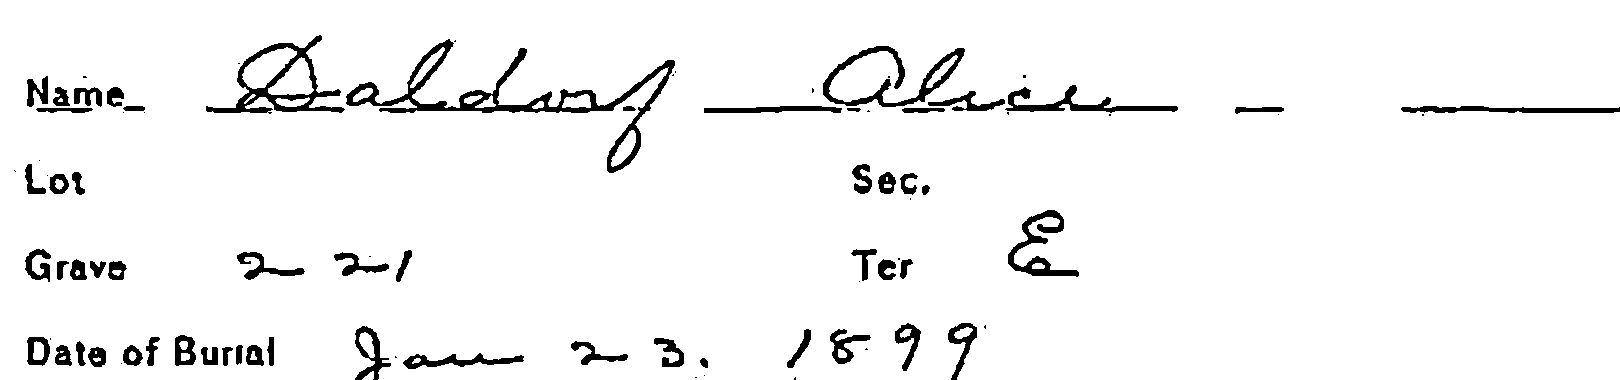 Name Daldorf Alice
Lot Sec.
Grave 221 Ter E
Date of Burial Jan 23. 1899